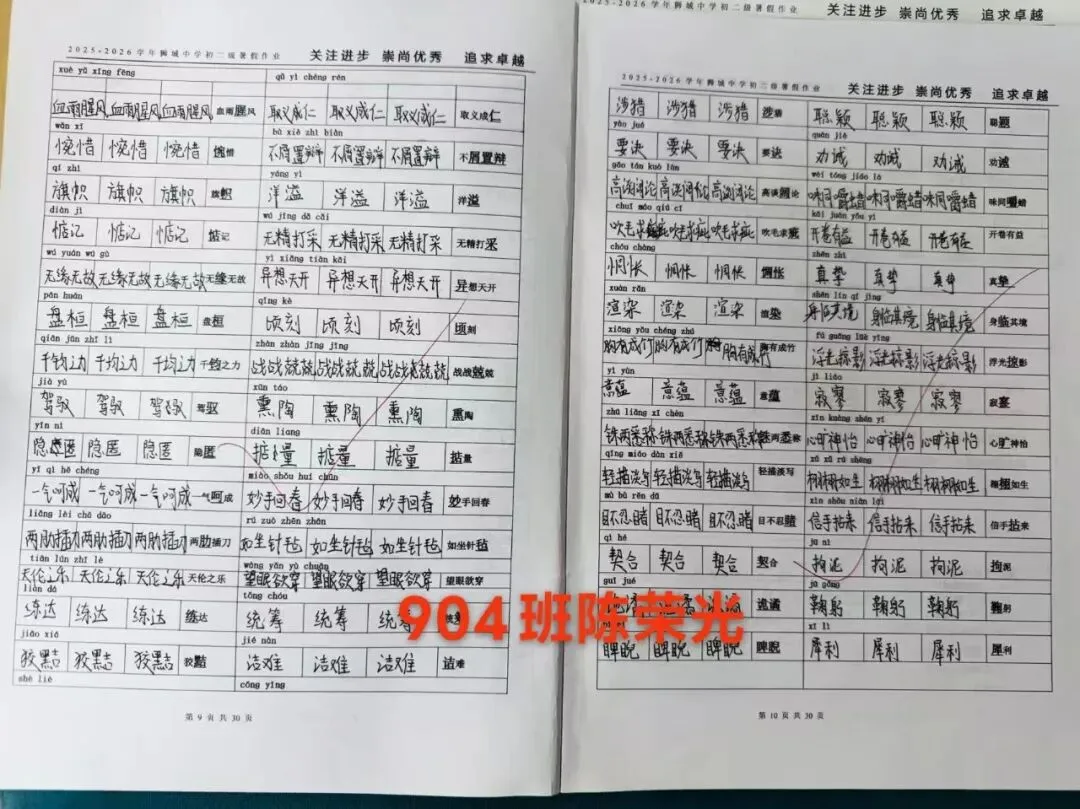 2025-2026学年狮城中学初二级暑假作业 关注进步 崇尚优秀 追求卓越
xuè yǔ xīng fēng qǔ yì chéng rén
血雨腥风 血雨腥风 血雨腥风 血雨腥风 取义成仁 取义成仁 取义成仁 取义成仁
wǎn xī bù xiè zhì biàn
惋惜 惋惜 惋惜 惋惜 不屑置辩 不屑置辩 不屑置辩 不屑置辩
qí zhì yáng yì
旗帜 旗帜 旗帜 旗帜 洋溢 洋溢 洋溢 洋溢
diàn jì wú jīng dǎ cǎi
惦记 惦记 惦记 惦记 无精打采 无精打采 无精打采 无精打采
wú yuán wú gù yì xiǎng tiān kāi
无缘无故 无缘无故 无缘无故 无缘无故 异想天开 异想天开 异想天开 异想天开
pán huán qǐng kè
盘桓 盘桓 盘桓 盘桓 顷刻 顷刻 顷刻 顷刻
qiān jūn zhī lì zhàn zhàn jīng jīng
千钧之力 千均之力 千均之力 千钧之力 战战兢兢 战战兢兢 战战兢兢 战战兢兢
jià yù xūn táo
驾驭 驾驭 驾驭 驾驭 熏陶 熏陶 熏陶 熏陶
yǐn nì diān liang
隐匿 隐匿 隐匿 隐匿 掂量 掂量 掂量 掂量
yī qì hē chéng miào shǒu huí chūn
一气呵成 一气呵成 一气呵成 一气呵成 妙手回春 妙手回春 妙手回春 妙手回春
liǎng lèi chā dāo rú zuò zhēn zhān
两肋插刀 两肋插刀 两肋插刀 两肋插刀 如坐针毡 如坐针毡 如坐针毡 如坐针毡
tiān lún zhī lè wàng yǎn yù chuān
天伦之乐 天伦之乐 天伦之乐 天伦之乐 望眼欲穿 望眼欲穿 望眼欲穿 望眼欲穿
liàn dá tǒng chóu
练达 练达 练达 练达 统筹 统筹 统筹
jiǎo xiá jié nàn
狡黠 狡黠 狡黠 狡黠 诘难 诘难 诘难 诘难
shè liè cōng yǐng
第 9 页 共 30 页
2025-2026学年狮城中学初二级暑假作业 关注进步 崇尚优秀 追求卓越
2025-2026学年狮城中学初二级暑假作业 关注进步 崇尚优秀 追求卓越
涉猎 涉猎 涉猎 涉猎 聪颖 聪颖 聪颖 聪颖
yào jué quàn jiè
要决 要决 要决 要诀 劝诫 劝诫 劝诫 劝诫
gāo tán kuò lùn wèi tóng jiáo là
高谈阔论 高谈阔论 高谈阔论 高谈阔论 味同嚼蜡 味同嚼蜡 味同嚼蜡 味同嚼蜡
chuī máo qiú cī kāi juàn yǒu yì
吹毛求疵 吹毛求疵 吹毛求疵 吹毛求疵 开卷有益 开卷有益 开卷有益 开卷有益
chóu chàng zhēn zhì
惆怅 惆怅 惆怅 惆怅 真挚 真挚 真挚 真挚
xuàn rǎn shēn lín qí jìng
渲染 渲染 渲染 渲染 身临其境 身临其境 身临其境 身临其境
xiōng yǒu chéng zhú fú guāng lüè yǐng
胸有成竹 胸有成竹 胸有成竹 胸有成竹 浮光掠影 浮光掠影 浮光掠影 浮光掠影
yì yùn jì liáo
意蕴 意蕴 意蕴 意蕴 寂寥 寂寥 寂寥 寂寥
zhū liǎng xī chèn xīn kuàng shén yí
铢两悉称 铢两悉称 铢两悉称 铢两悉称 心旷神怡 心旷神怡 心旷神怡 心旷神怡
qīng miáo dàn xiě xǔ xǔ rú shēng
轻描淡写 轻描淡写 轻描淡写 轻描淡写 栩栩如生 栩栩如生 栩栩如生 栩栩如生
mù bù rěn dǔ xìn shǒu niān lái
目不忍睹 目不忍睹 目不忍睹 目不忍睹 信手拈来 信手拈来 信手拈来 信手拈来
qì hé jū nì
契合 契合 契合 契合 拘泥 拘泥 拘泥 拘泥
guǐ jué jū gōng
诡谲 鞠躬 鞠躬 鞠躬 鞠躬
904班陈荣光
xī lì
睥睨 睥睨 睥睨 睥睨 犀利 犀利 犀利 犀利
第 10 页 共 30 页